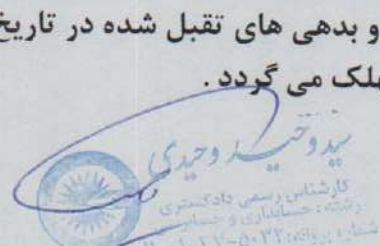 و بدهی های تقبل شده در تاریخ
هلک می گردد .
سید وحید وحیدی
کارشناس رسمی دادگستری
رشته : حسابداری و حسابرسی
شماره پروانه: